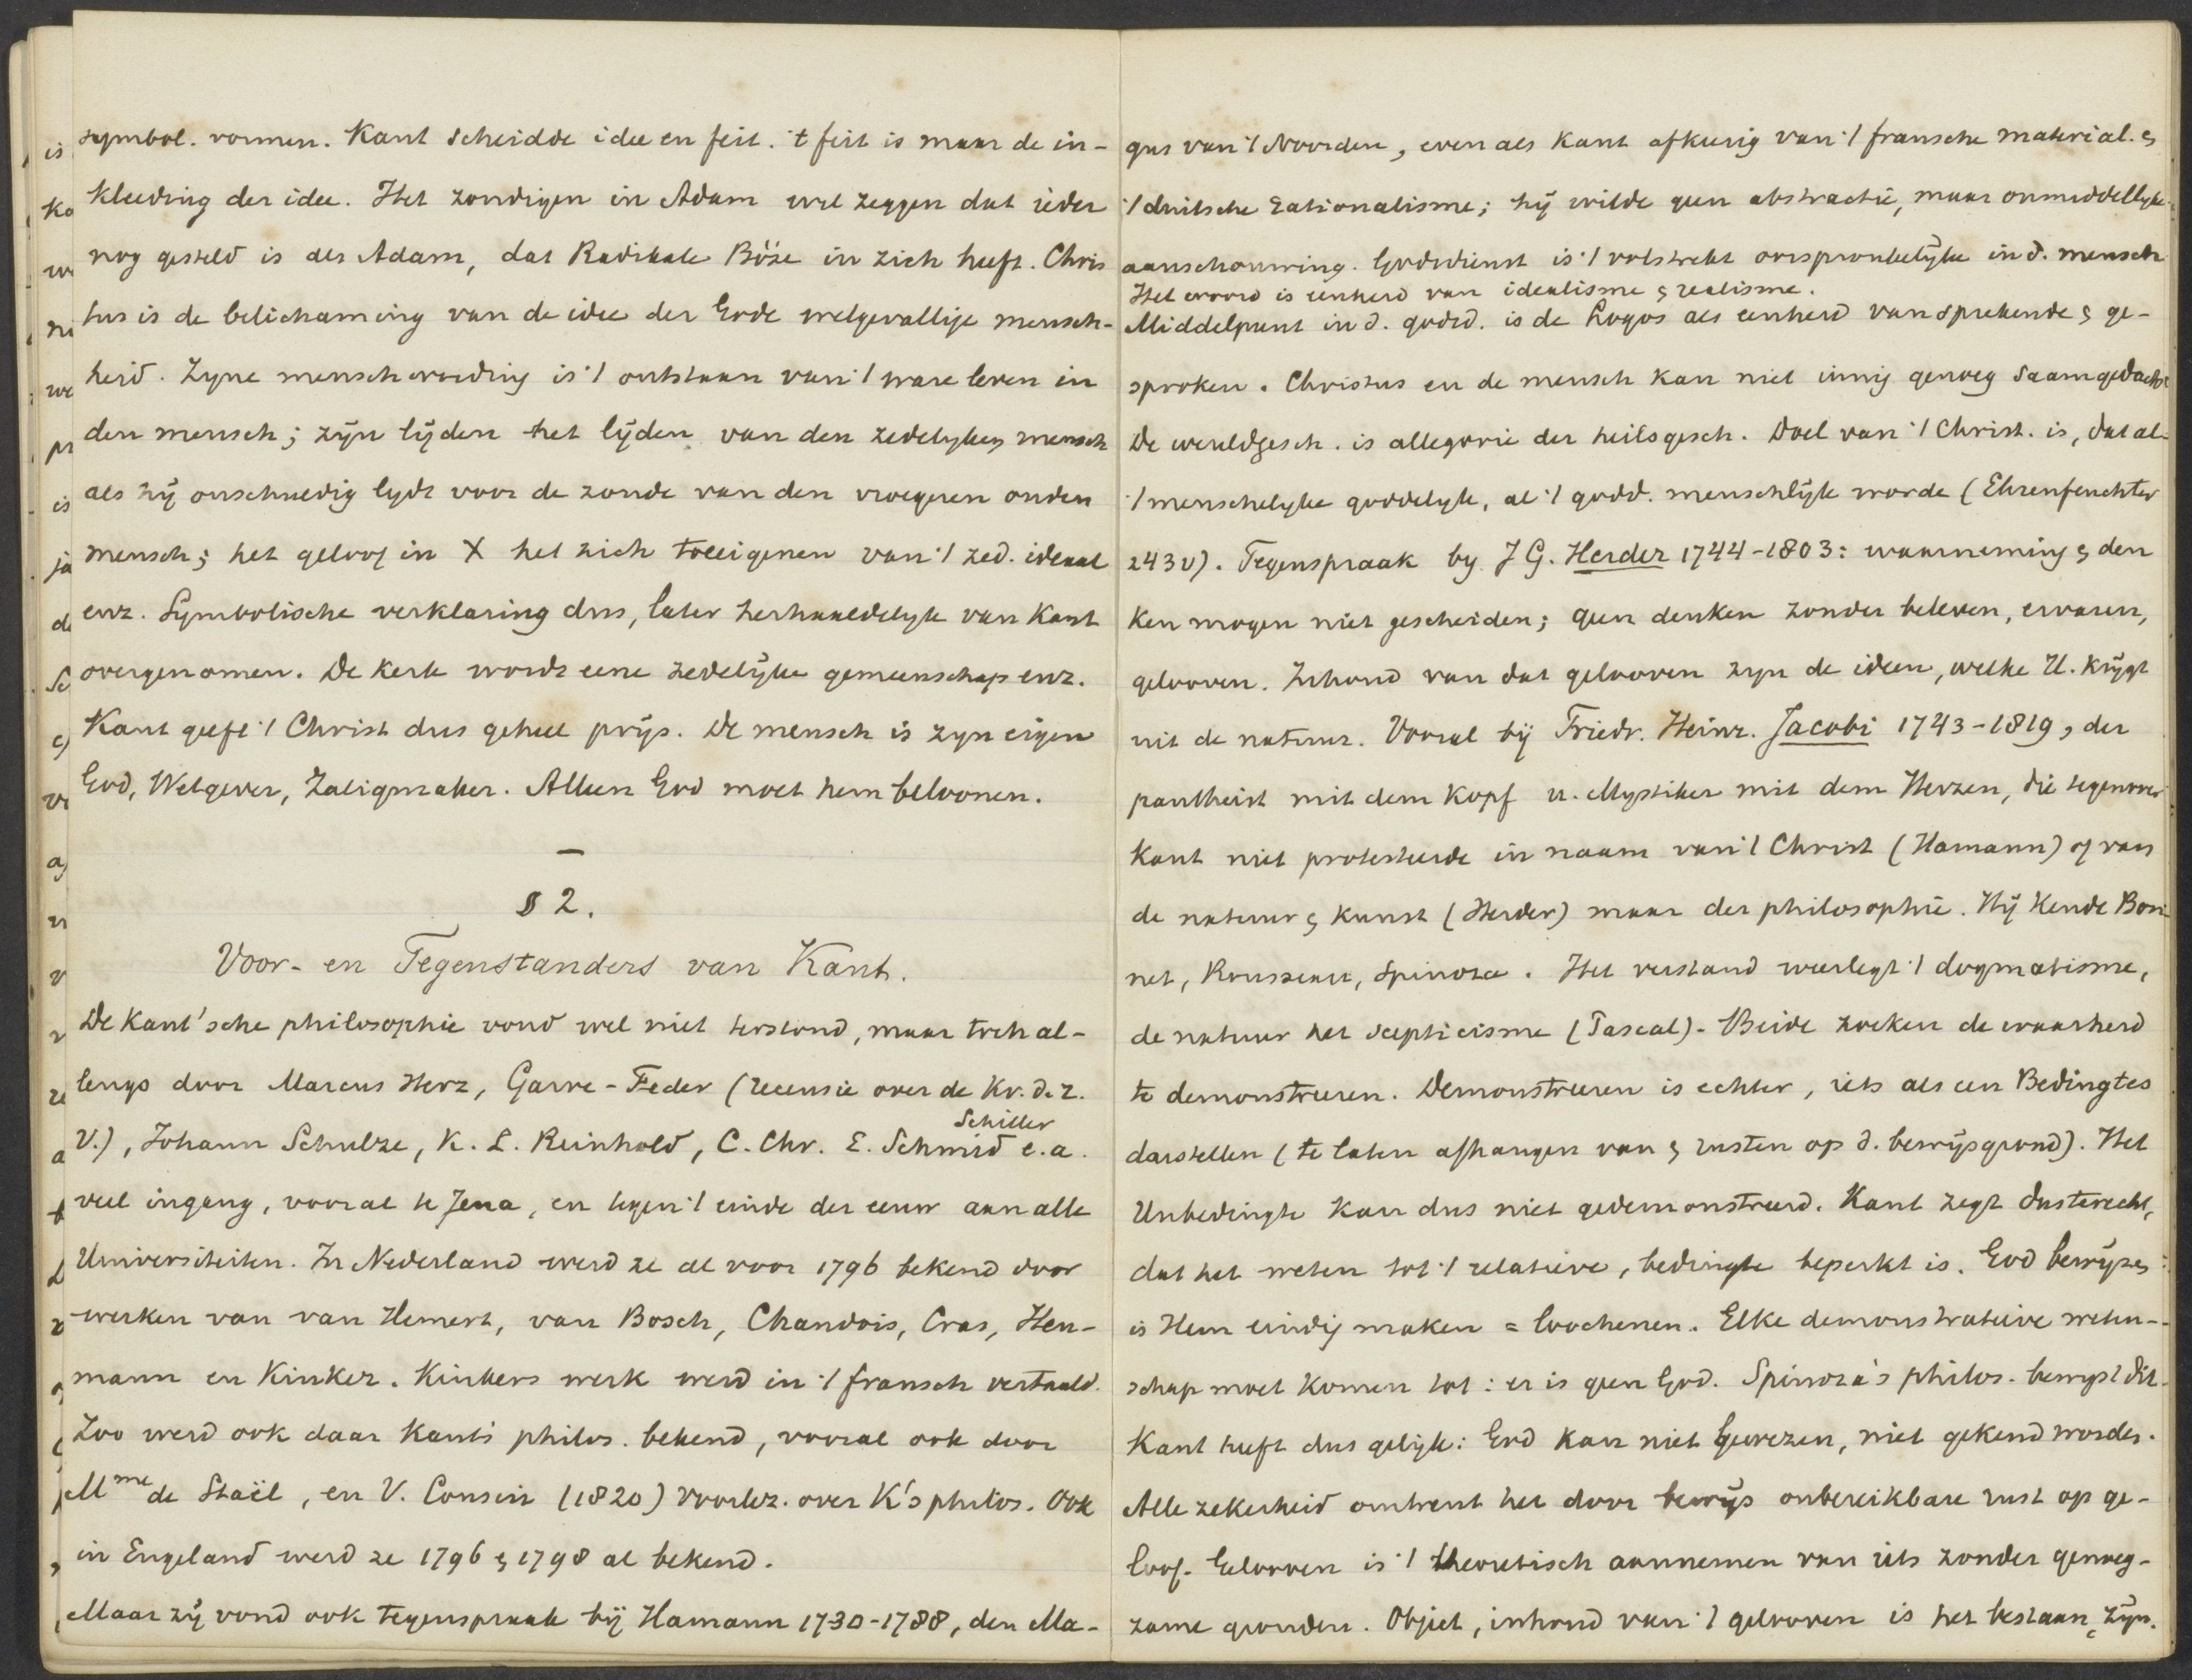 symbol. vormen. Kant scheidde idee en feit. 't feit is maar de in-
kleeding der idee. Het zondigen in Adam wil zeggen dat ieder
nog gesteld is als Adam, dat Radikale Böse in zich heeft. Chris
tus is de belichaming van de idee der Gode welgevallige mensch-
heid. Zyne menschwording is 't ontstaan van 't ware leven in
den mensch; zijn lijden het lijden van den zedelyken mensch
als hij onschuldig lydt voor de zonde van den vroegeren ouden
mensch; het geloof in X het zich toeeigenen van 't zed. ideaal
enz. Symbolische verklaring dus, later herhaaldelyk van Kant
overgenomen. De kerk wordt eene zedelijke gemeenschap enz.
Kant geeft 't Christ dus geheel prijs. De mensch is zyn eigen
God, Wetgever, Zaligmaker. Alleen God moet hem beloonen.
—
§ 2.
Voor- en Tegenstanders van Kant.
De Kant'sche philosophie vond wel niet terstond, maar toch al-
lengs door Marcus Herz, Garve-Feder (recensie over de Kr. d. r.
V.), Johann Schulze, K. L. Reinhold, C. Chr. E. Schmid Schiller e.a.
veel ingang, vooral te Jena, en tegen 't einde der eeuw aan alle
Universiteiten. In Nederland werd ze al voor 1796 bekend door
werken van van Hemert, van Bosch, Chandois, Cras, Heu-
mann en Kinker. Kinkers werk werd in 't fransch vertaald.
Zoo werd ook daar Kants philos. bekend, vooral ook door
Mme de Staël, en V. Cousin (1820) voorlez. over K's philos. Ook
in Engeland werd ze 1796 & 1798 al bekend.
Maar zij vond ook tegenspraak bij Hamann 1730-1788, den Ma-
gus van 't Noorden, even als Kant afkeerig van 't fransche material. &
't duitsche rationalisme; hij wilde geen abstractie, maar onmiddellyke
aanschouwing. Godsdienst is 't volstrekt oorspronkelijke in d. mensch
Het woord is eenheid van idealisme & realisme.
Middelpunt in d. godsd. is de Logos als eenheid van sprekende & ge-
sproken. Christus en de mensch kan niet innig genoeg saamgedacht
De wereldgesch. is allegorie der heilsgesch. Doel van 't Christ. is, dat al
't menschelyke goddelyk, al 't godd. menschlijk worde (Ehrenfeuchter
243 v). Tegenspraak by J G. Herder 1744-1803: waarneming & den
ken mogen niet gescheiden; geen denken zonder beleven, ervaren,
gelooven. Inhoud van dat gelooven zyn de ideen, welke H. krijgt
uit de natuur. Vooral bij Friedr. Heinr. Jacobi 1743-1819, der
pantheist mit dem Kopf u. Mystiker mit dem Herzen, die tegenover
Kant niet protesteerde in naam van 't Christ (Hamann) of van
de natuur & kunst (Herder) maar der philosophie. Hij kende Bon
net, Rousseau, Spinoza. Het verstand weerlegt 't dogmatisme,
de natuur het scepticisme (Pascal). Beide zoeken de waarheid
te demonstreeren. Demonstreeren is echter, iets als een Bedingtes
darstellen (te laten afhangen van & rusten op d. bewijsgrond). Het
Unbedingte kan dus niet gedemonstreerd. Kant zegt dus terecht,
dat het weten tot 't relatieve, bedingte beperkt is. God bewijzen
is Hem eindig maken = loochenen. Elke demonstratieve weten-
schap moet komen tot: er is geen God. Spinoza's philos. bewyst dit.
Kant heeft dus gelijk: God kan niet bewezen, niet gekend worden.
Alle zekerheid omtrent het door bewijs onbereikbare rust op ge-
loof. Gelooven is 't theoretisch aannemen van iets zonder genoeg-
zame gronden. Objekt, inhoud van 't gelooven is het bestaan, zijn.